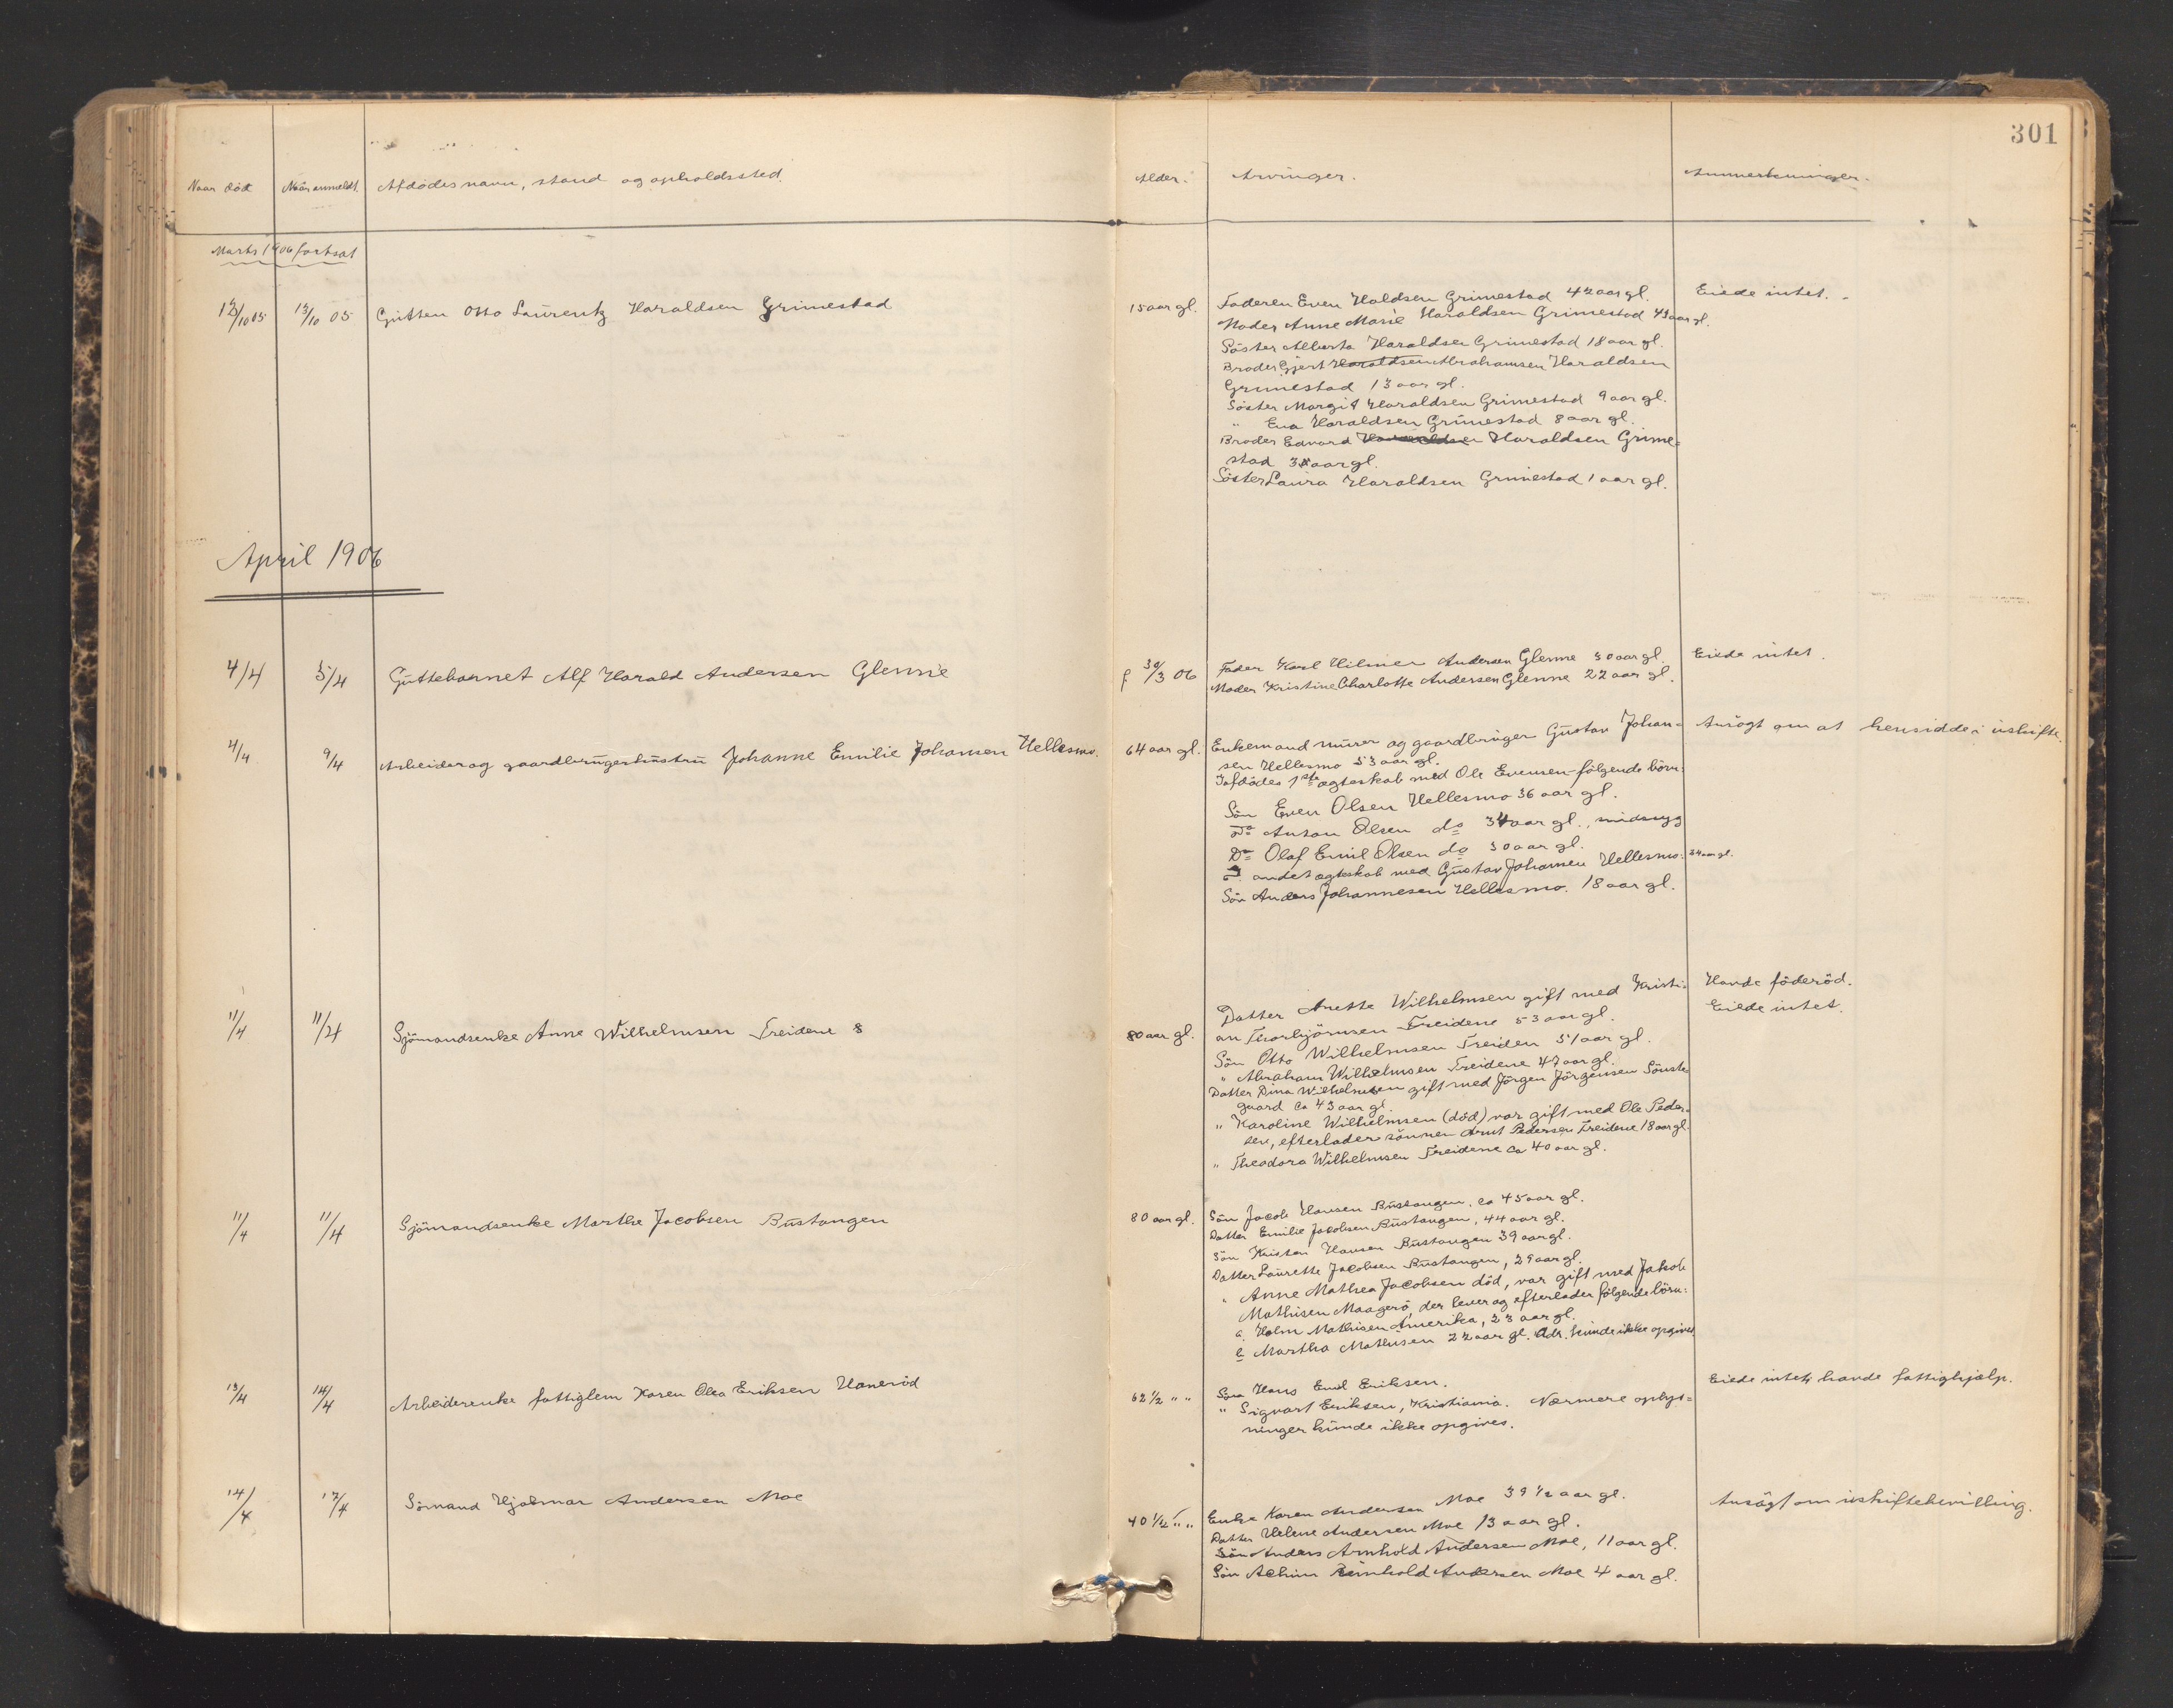 301
Naar död
Naar anmeldt.
Afdödes navn, stand og opholdssted.
Alder.
Arvinger.
Anmerkninger.
Marts 1906 fortsat
12/10 05
13/10 05
Gutten Otto Laurentz Haraldsen Grimestad
15 aar gl.
Faderen Even Haldsen Grimestad 42 aar gl.
Moder Anne Marie Haraldsen Grimestad 43 aar gl.
Söster Alberta Haraldsen Grimestad 18 aar gl.
Broder Gjert Haraldsen Abrahamsen Haraldsen
Grimestad 13 aar gl.
Söster Margit Haraldsen Grimestad 9 aar gl.
" Eva Haraldsen Grimestad 8 aar gl.
Broder Edvard Haraldsen Grime=
stad 3 aar gl.
Söster Laura Haraldsen Grimestad 1 aar gl.
Eiede intet.
April 1906
4/4
5/4
Guttebarnet Alf Harald Andersen Glenne
f 30/3 06
Fader Karl Hilmer Andersen Glenne 30 aar gl.
Moder Kristine Charlotte Andersen Glenne 22 aar gl.
Eiede intet.
4/4
9/4
Arbeider og gaardbrugerhustru Johanne Emilie Johansen Hellesmo.
64 aar gl.
Enkemand murer og gaardbruger Gustav Johan=
sen Hellesmo 53 aar gl.
I afdödes 1ste ægteskab med Ole Evensen følgende börn:
Sön Even Olsen Hellesmo 36 aar gl.
Do Anton Olsen do 34 aar gl., sindssyg
Do Olaf Emil Olsen do 30 aar gl.
I andet ægteskab med Gustav Johansen Hellesmo: 24 aar gl.
Sön Anders Johannesen Hellesmo. 18 aar gl.
Ansögt om at hensidde i uskifte.
11/4
11/4
Sjömandsenke Anne Wilhelmsen Treidene 8
80 aar gl.
Datter Anette Wilhelmsen gift med Kristi=
an Thorbjörnsen Treidene 53 aar gl.
Sön Otto Wilhelmsen Treiden 51 aar gl.
" Abraham Wilhelmsen Treidene 47 aar gl.
Datter Dina Wilhelmsen gift med Jörgen Jörgensen Sönste
gaard ca 43 aar gl.
" Karoline Wilhelmsen (död) var gift med Ole Peder=
sen, efterlader sönnen Arnt Pedersen Treidene 18 aar gl.
" Theodora Wilhelmsen Treidene ca 40 aar gl.
Havde föderöd.
Eiede intet.
11/4
11/4
Sjömandsenke Marthe Jacobsen Bustangen
80 aar gl.
Sön Jacob Hansen Bustangen, ca 45 aar gl.
Datter Emilie Jacobsen Bustangen, 44 aar gl.
Sön Kristen Hansen Bustangen 39 aar gl.
Datter Laurette Jacobsen Bustangen, 29 aar gl.
" Anne Mathea Jacobsen död, var gift med Jakob
Mathisen Maagerö, der lever og efterlader følgende börn:
a. Holm Mathisen Amerika, 23 aar gl.
b Martha Mathisen 22 aar gl. Adr. kunde ikke opgives
13/4
14/4
Arbeiderenke fattiglem Karen Olea Eriksen Haneröd
62 1/2 " "
Sön Hans Emil Eriksen.
" Sigvart Eriksen, Kristiania. Nærmere oplys=
ninger kunde ikke opgives.
Eiede intet, havde fattighjælp.
14/4
17/4
Sömand Hjalmar Andersen Moe
40 1/2 " "
Enke Karen Andersen Moe 39 1/2 aar gl.
Datter Helene Andersen Moe 13 aar gl.
Sön Anders Arnhold Andersen Moe, 11 aar gl.
Sön Achim Reinhold Andersen Moe 4 aar gl.
Ansögt om uskiftebevilling.